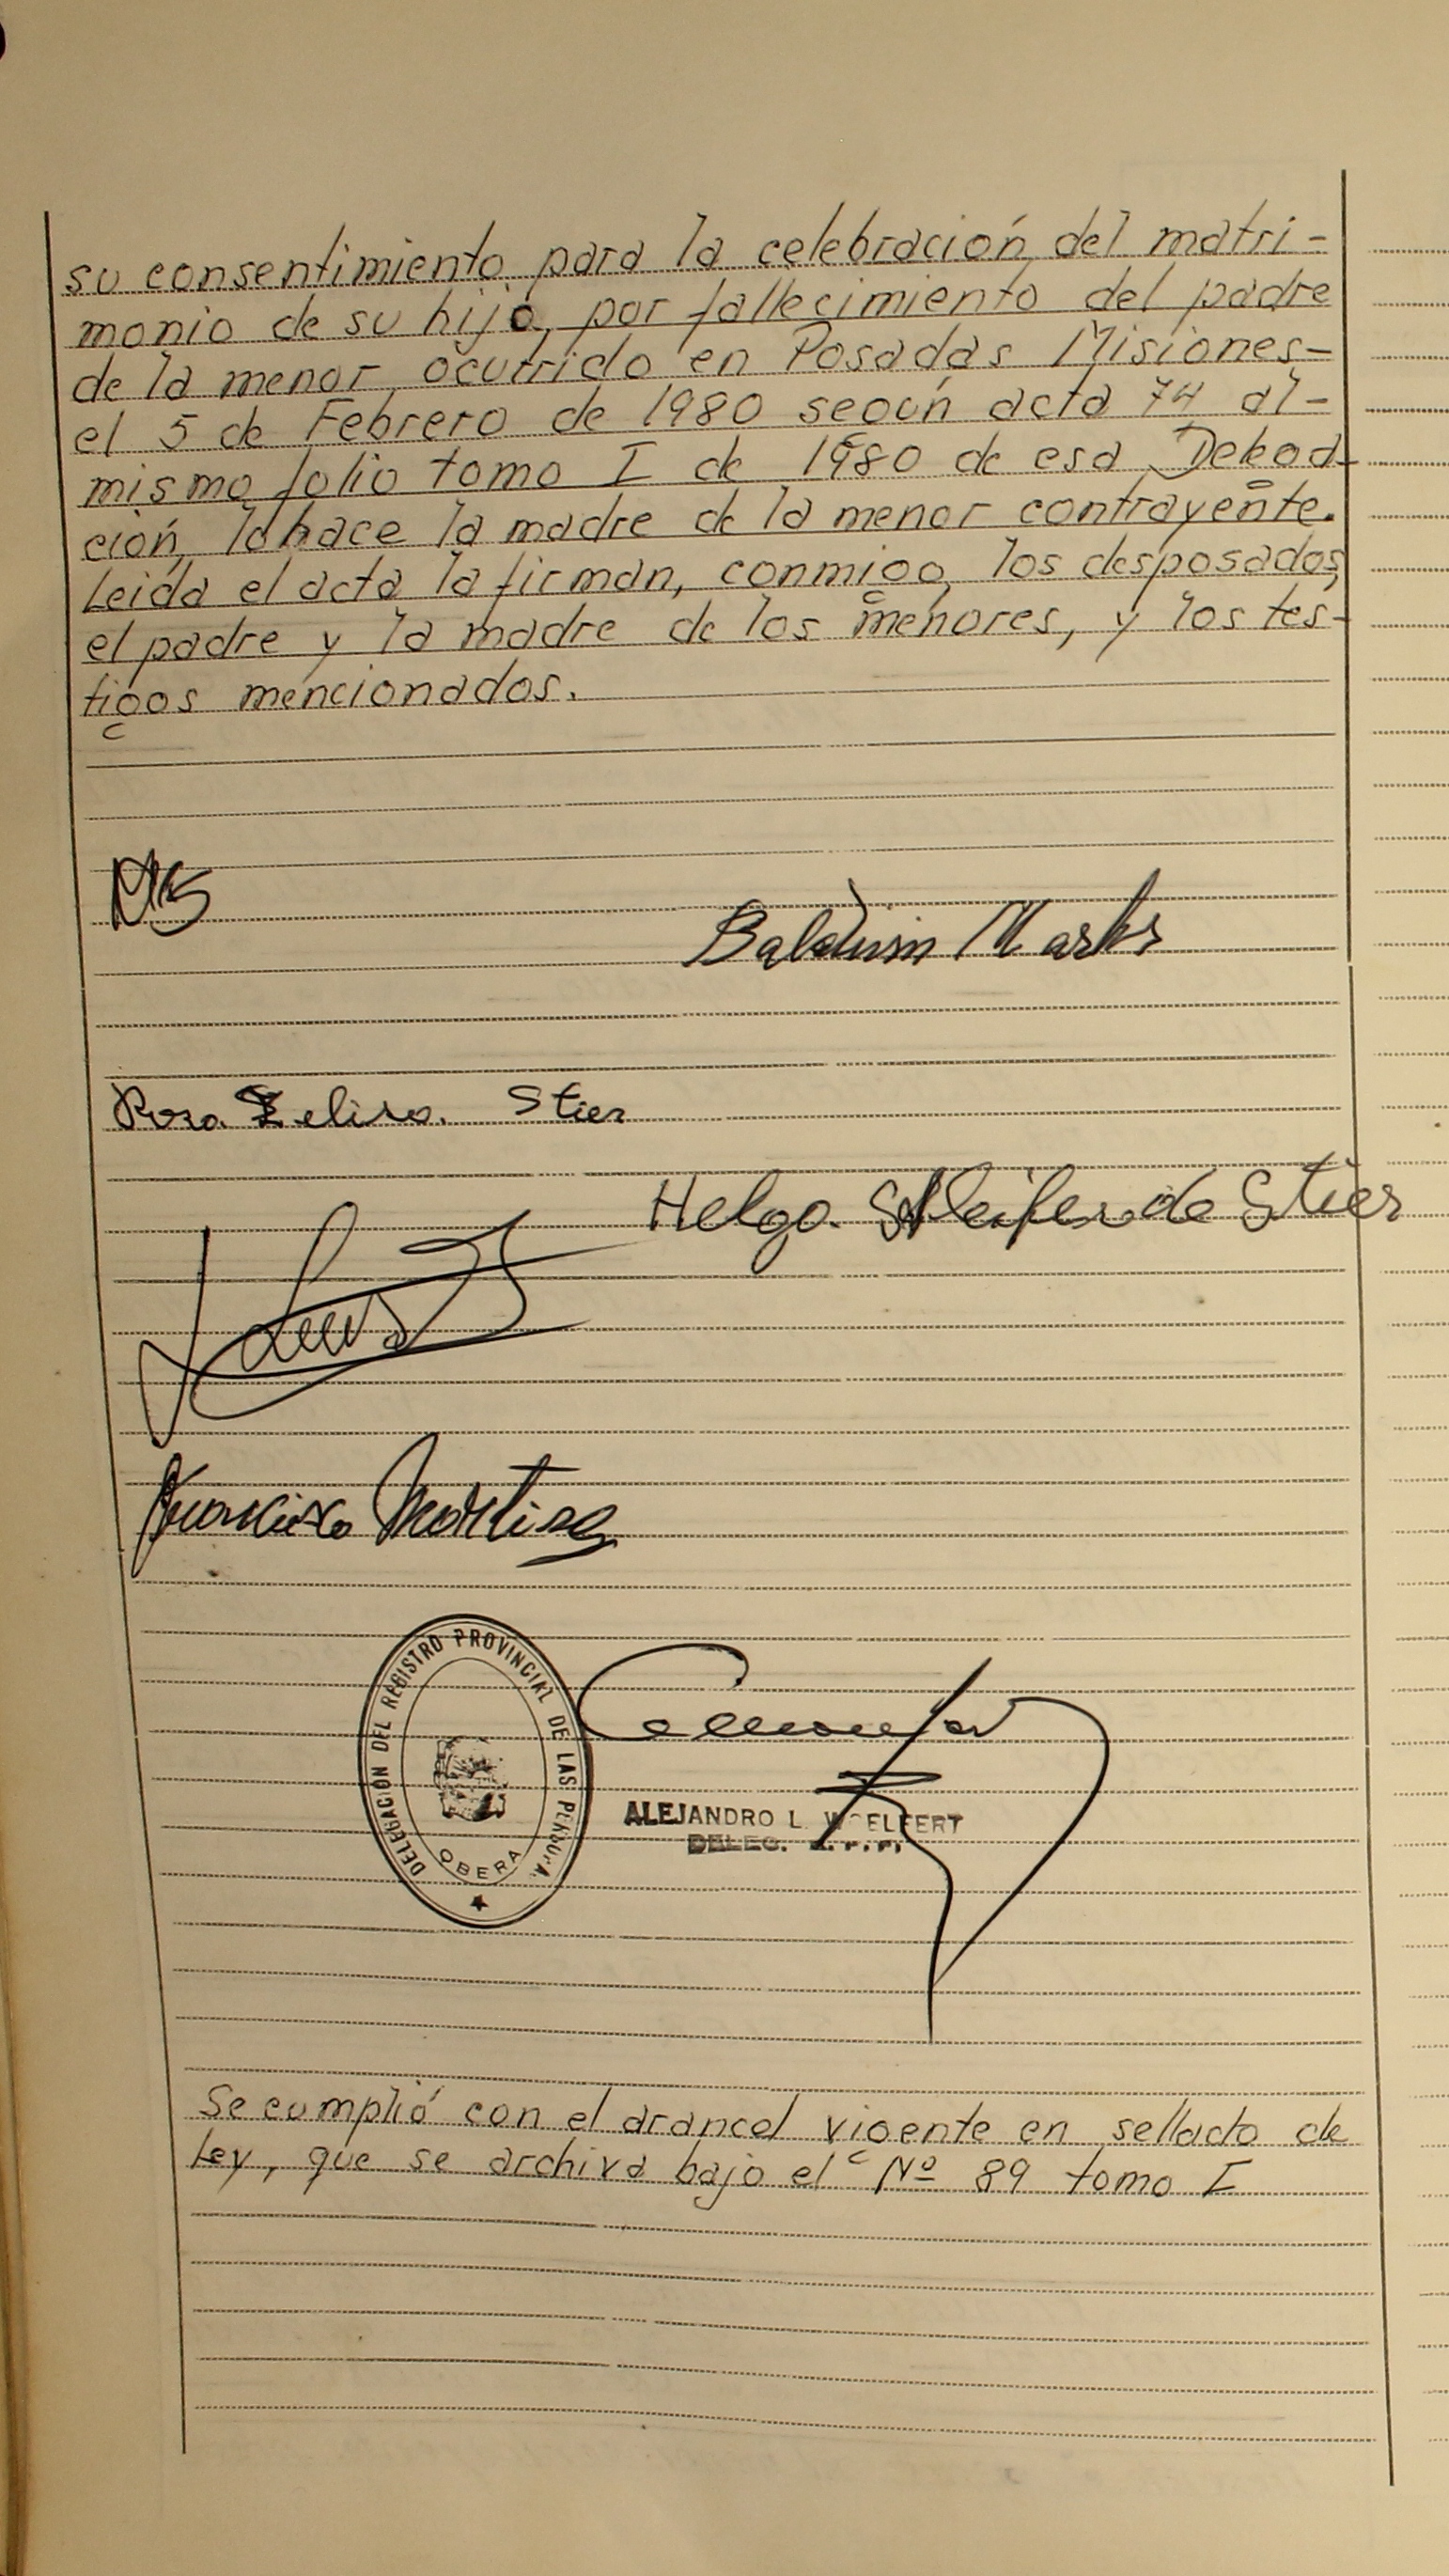 su consentimiento para la celebración del matri-
monio de su hijo, por fallecimiento del padre
de la menor, ocurrido en Posadas Misiones-
el 5 de Febrero de 1980 según acta 74 al-
mismo folio tomo I de 1980 de esa Delega-
ción, lo hace la madre de la menor contrayente.
Leida el acta la firman, conmigo, los desposados,
el padre y la madre de los menores, y los tes-
tigos mencionados.
Balduin Marks
Rosa Stier
Helga de Stier
Francisco Martinez
DELEGACIÓN DEL REGISTRO PROVINCIAL DE LAS PERSONAS
OBERA
ALEJANDRO L. WOELFERT
DELEG. R.P.P.
Se cumplió con el arancel vigente en sellado de
Ley, que se archiva bajo el Nº 89 tomo I